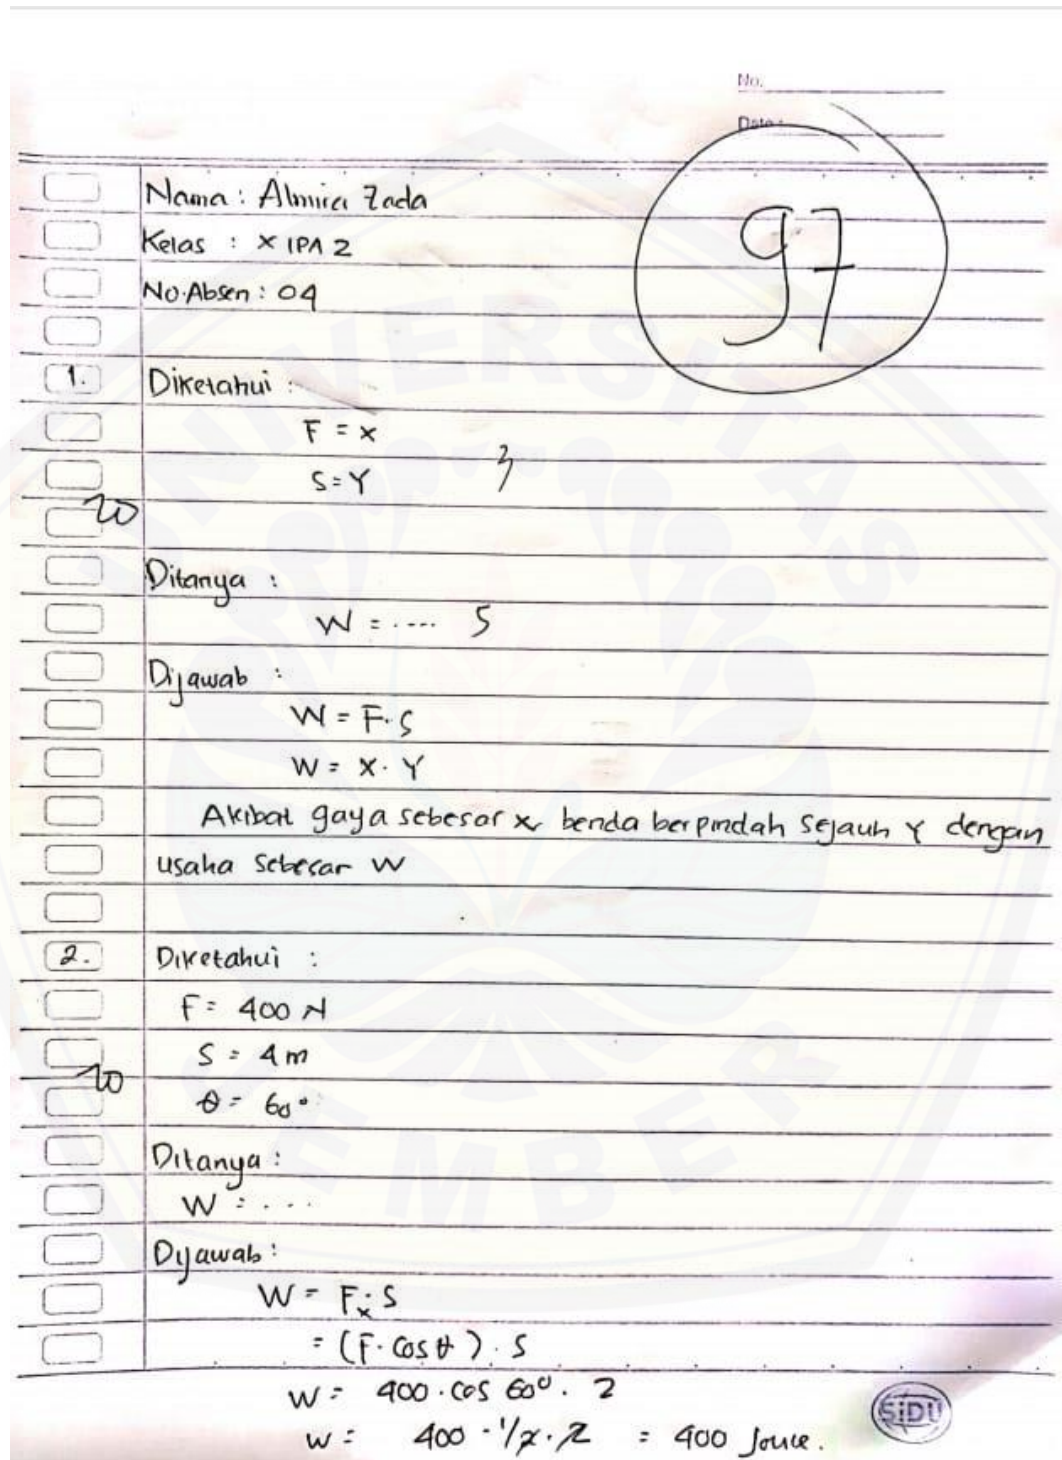 No.
Date :
97
Nama : Almira Zada
Kelas : X IPA 2
No.Absen : 04
1. Diketahui :
F = x
S = Y 3
20
Ditanya :
W = ..... 5
Dijawab :
W = F.S
W = X . Y
Akibat gaya sebesar x benda berpindah sejauh Y dengan
usaha sebesar W
2. Diketahui :
F = 400 N
S = 4 m
20
θ = 60°
Ditanya :
W = ....
Dijawab :
W = Fx . S
= (F. cos θ) . S
W = 400 . cos 60° . 2
W = 400 . 1/2 . 2 = 400 Joule.
SiDU
UNIVERSITAS
JEMBER